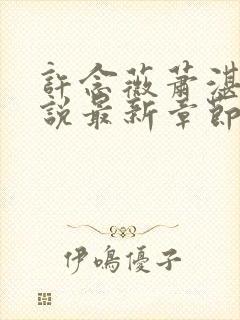 許念薇蕭湛
說最新章節
伊鳴優子